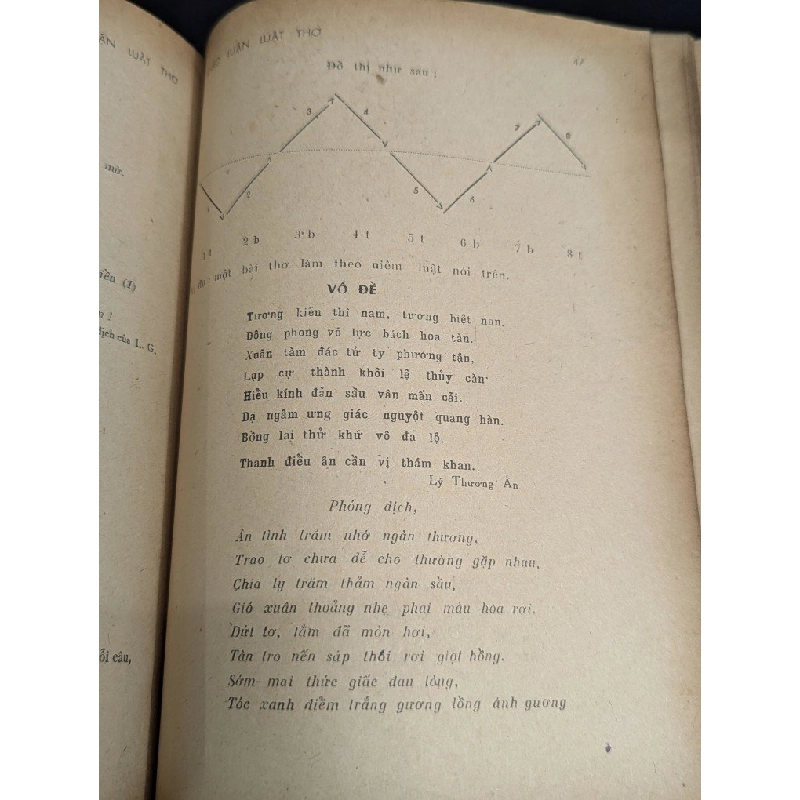 ÂN LUẬT THƠ
mờ.
iền (1)
dịch của L. G.
ỗi câu,
VẦN LUẬT THƠ
47
Đồ thị như sau :
1 2 3 4 5 6 7 8
1 t 2 b 3 b 4 t 5 t 6 b 7 b 8 t
một bài thơ làm theo niêm luật nói trên.
VÔ ĐỀ
Tương kiến thì nam, tương biệt nan.
Đông phong vô lực bách hoa tàn.
Xuân tàm đáo tử ty phương tận,
Lạp cự thành khôi lệ thủy càn.
Hiểu kính đản sầu vân mấn cải.
Dạ ngâm ưng giác nguyệt quang hàn.
Bồng lai thử khứ vô đa lộ
Thanh điểu ân cần vị thám khan.
Lý Thương Ẩn
Phỏng dịch,
Ân tình trăm nhớ ngàn thương,
Trao tơ chưa dễ cho thường gặp nhau,
Chia ly trăm thảm ngàn sầu,
Gió xuân thoảng nhẹ phai màu hoa rơi.
Dứt tơ, tằm đã mòn hơi,
Tàn tro nến sáp thôi rơi giọt hồng.
Sớm mai thức giấc đau lòng,
Tóc xanh điểm trắng gương lồng ánh gương